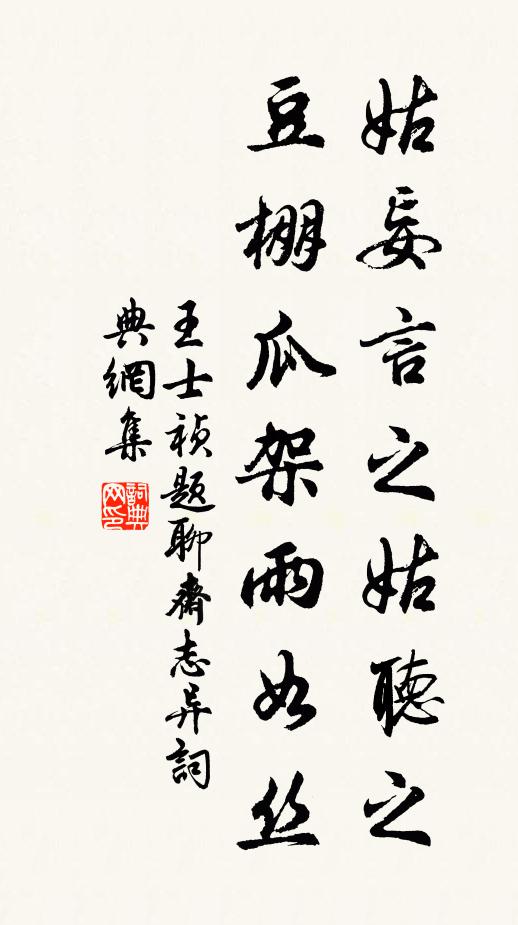 姑妄言之姑聽之
豆棚瓜架雨如丝
王士禎題聊齋志异詞
典網集
詞典网印